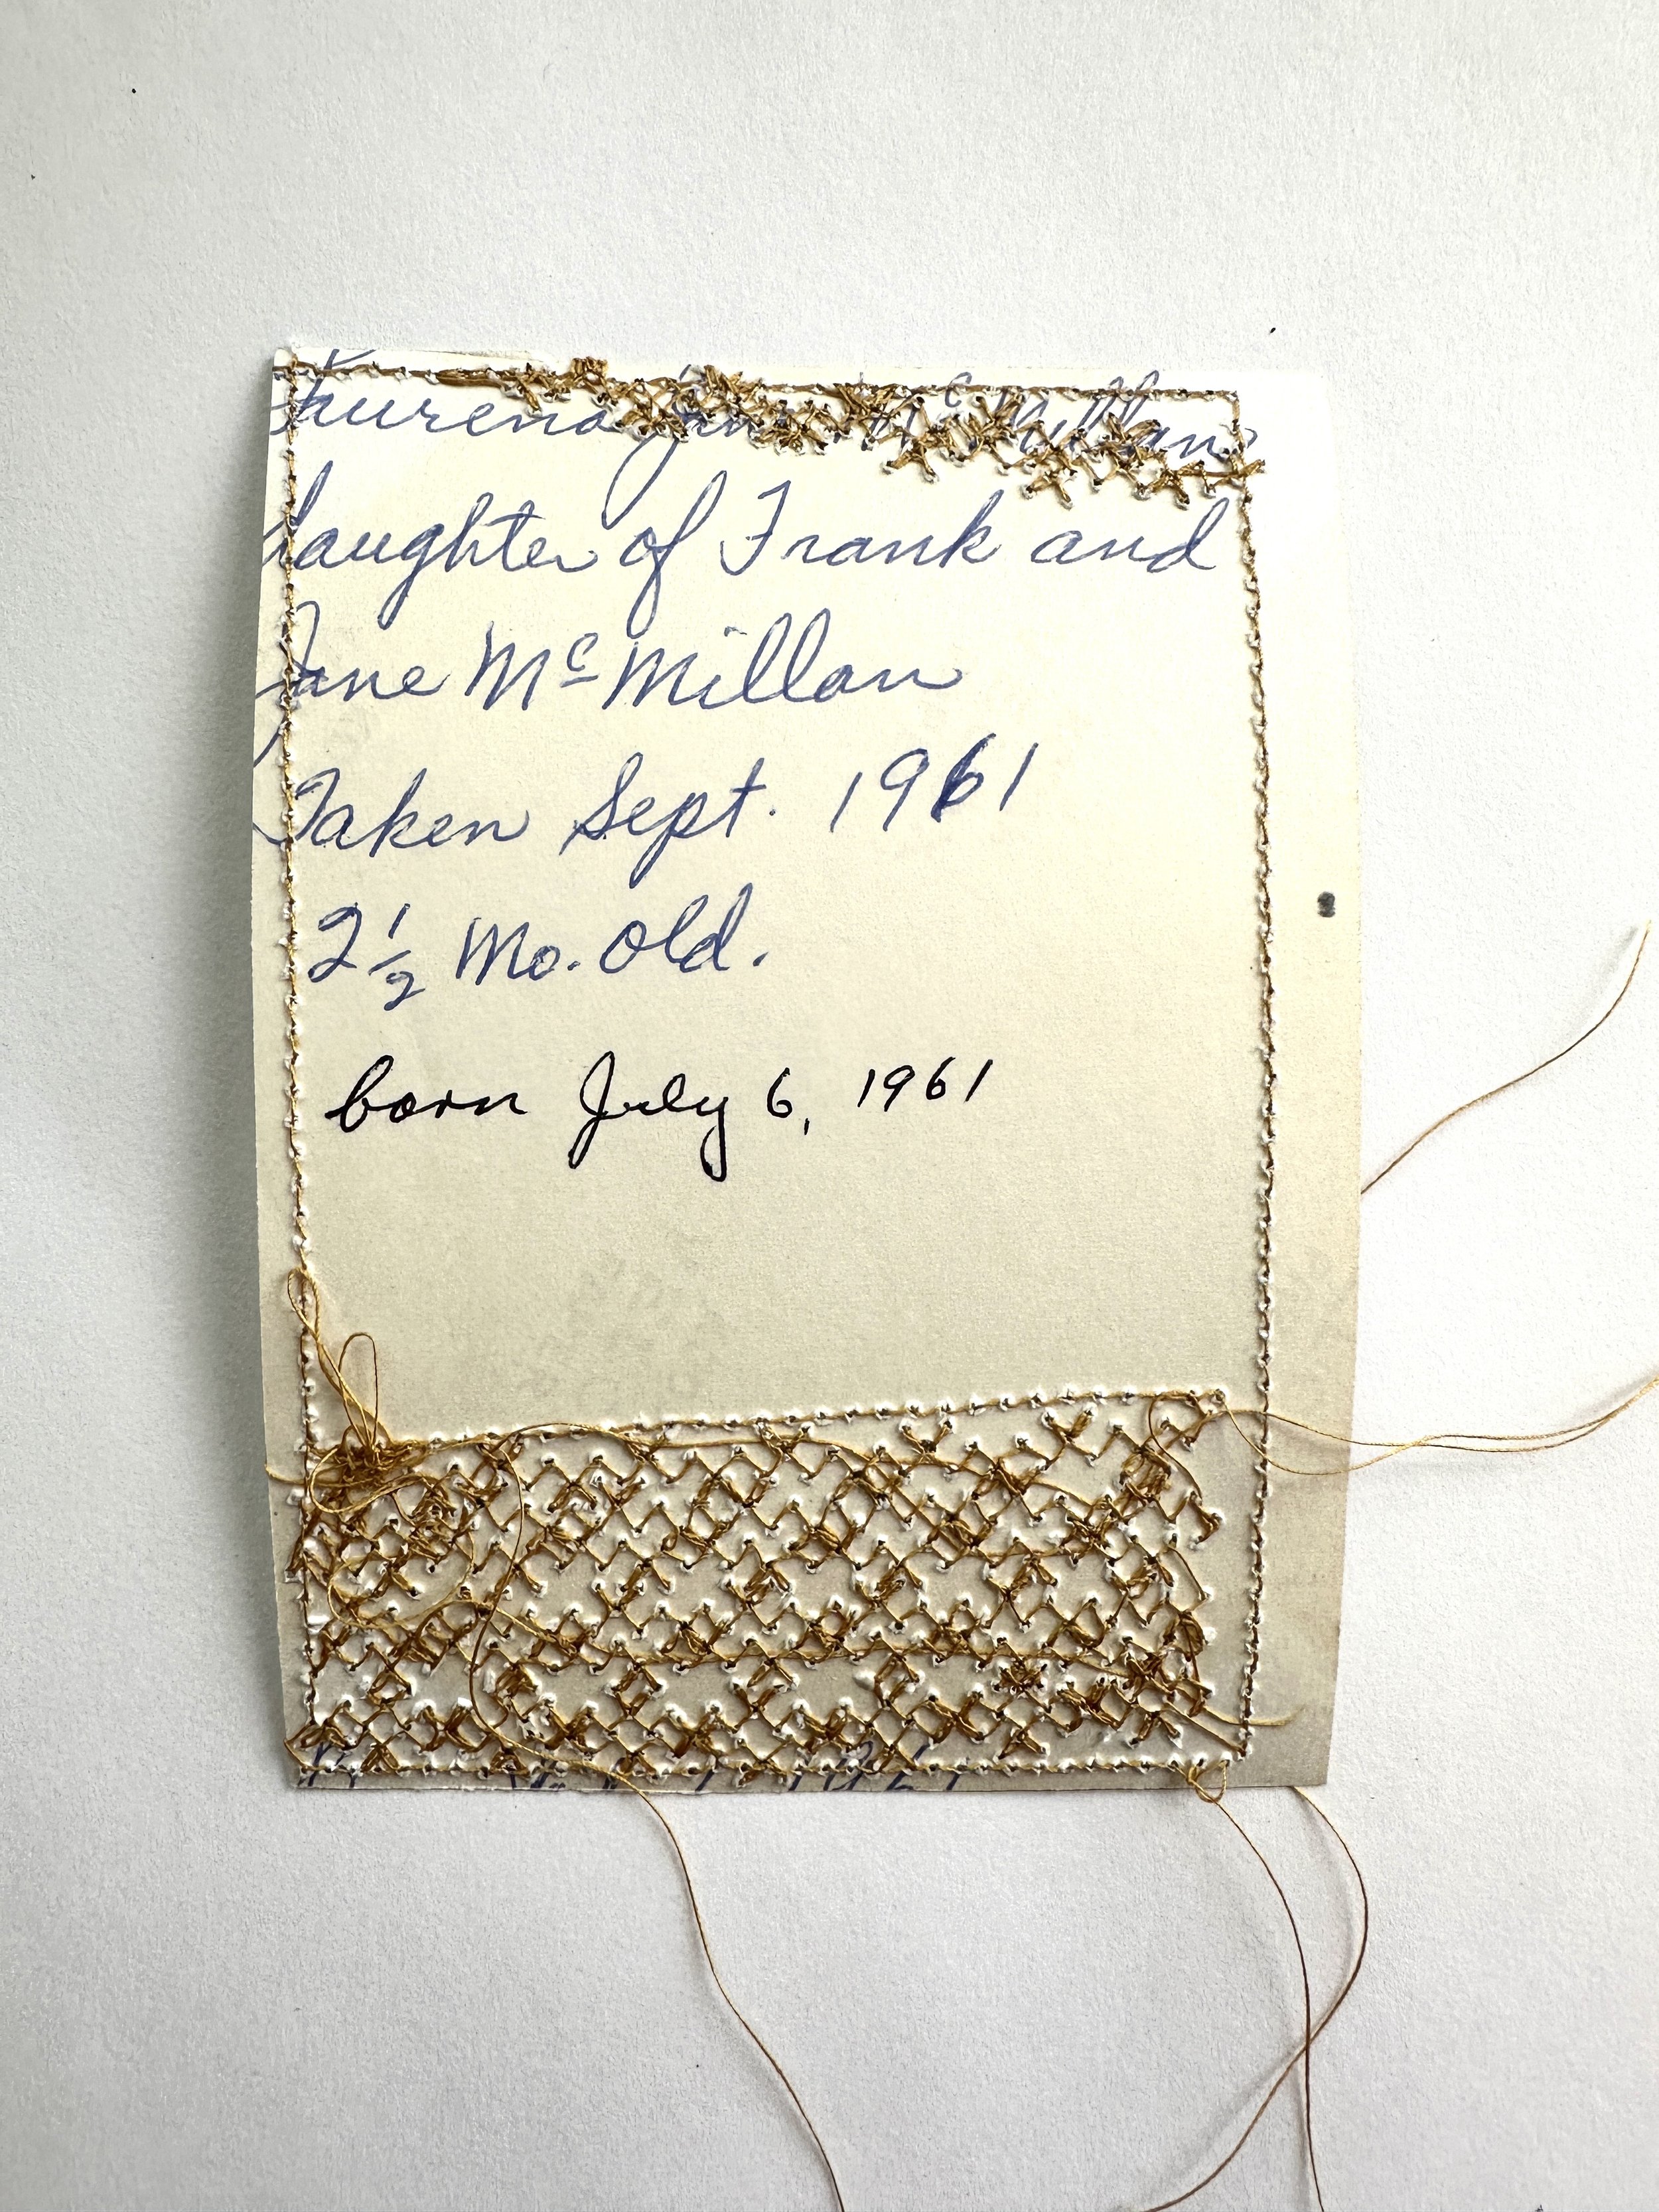 McMillan
daughter of Frank and
Jane McMillan
Taken Sept. 1961
2 1/2 Mo. Old.
born July 6, 1961